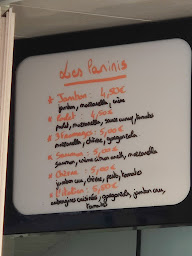 Les Paninis
* Jambon : 4,50€
jambon, mozzarella, crème
* Poulet : 5,00€
poulet, mozzarella, sauce curry, tomate
* 3 fromages : 5,00€
mozzarella, chèvre, gorgonzola
* Saumon : 5,00€
saumon, crème citron aneth, mozzarella
* Chèvre : 5,00€
jambon cru, chèvre, pesto, tomate
5,50€
aubergines cuisinées, gorgonzola, jambon cru,
tomate